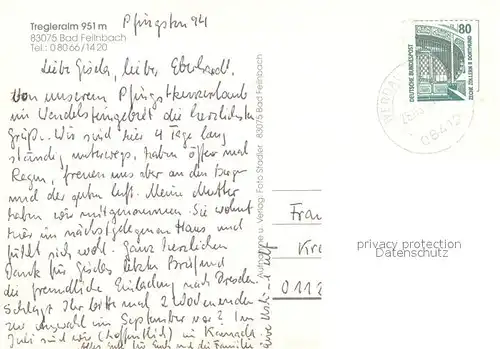 Tregleralm 951 m
83075 Bad Feilnbach
Tel.: 0 80 66/14 20
Pfingsten 94
Liebe Gisela, lieber Eberhardt,
von unserem Pfingstkurzurlaub
im Wendelsteingebiet die herzlichsten
Grüße. Wir sind hier 4 Tage lang
ständig unterwegs, haben öfter mal
Regen, freuen uns aber an den Bergen
und der guten Luft. Meine Mutter
haben wir mitgenommen. Sie wohnt
hier im nächstgelegenen Haus und
fühlt sich wohl. Ganz herzlichen
Dank für Giselas letzten Brief und
die freundliche Einladung nach Dresden.
Schlagt Ihr bitte mal 2 Wochenenden
zur Auswahl im September vor? Im
Juli sind wir (hoffentlich) in
Alles Gute für Euch und die Familie
Autogrüne u. Verlag: Foto Stadler 83075 Bad Feilnbach
80
DEUTSCHE BUNDESPOST
ZECHE ZOLLERN II DORTMUND
WERDAU
08412
Fran
Kre
0112
privacy protection
Datenschutz